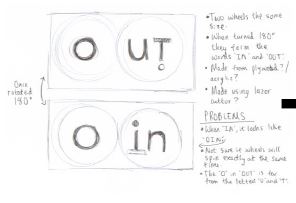 O UT
Once
rotated
180°
O in
• Two wheels the same
size.
• When turned 180°
they form the
words 'IN' and 'OUT'.
• Made from plywood?/
acrylic?
• Made using lazer
cutter?
PROBLEMS
• When 'IN', it looks like
'OIN'
• Not sure if wheels will
spin exactly at the same
time.
• The 'O' in 'OUT' is far
from the letter 'U' and 'T'.